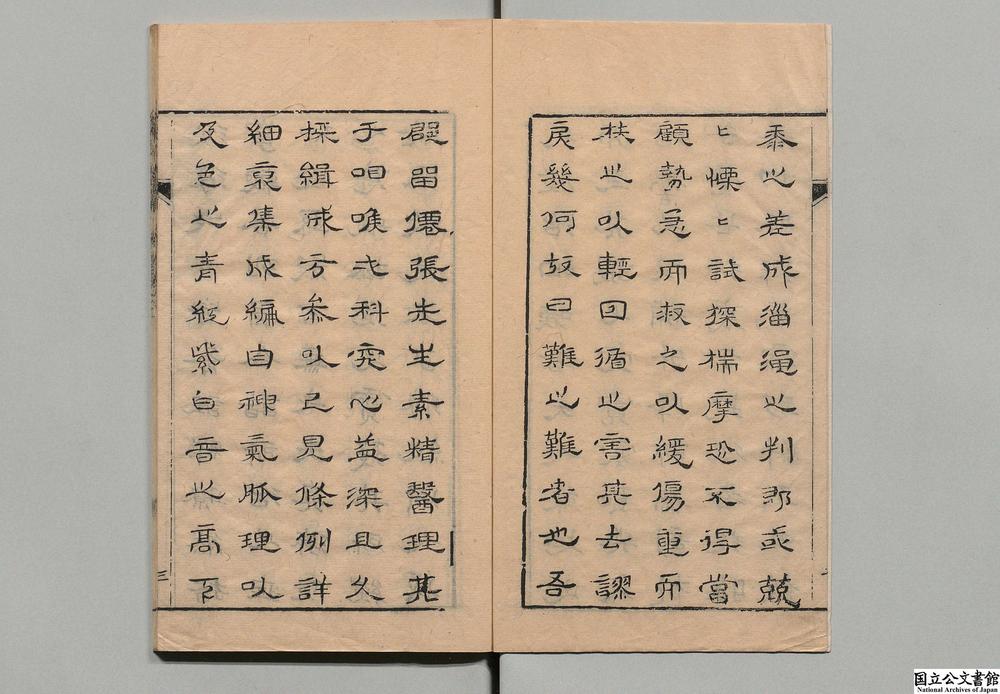 黍之差成淄澠之判即或兢
〻慄〻試探揣摩恐不得當
顧勢急而救之以緩傷重而
扶之以輕因循之害其去謬
戾幾何故曰難之難者也吾
郡留僊張先生素精醫理其
于咽喉弌科究心益深且久
採緝成方叅以己見條例詳
細裒集成編自神氣脈理以
及色之青紅紫白音之高下
三
国立公文書館
National Archives of Japan